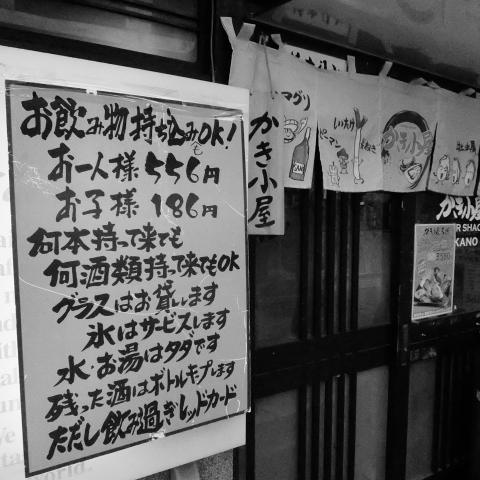 お飲み物持ち込みもOK!
お一人様556円
お子様186円
何本持って来ても
何酒類持って来てもOK
グラスはお貸しします
氷はサービスします
水・お湯はタダです
残った酒はボトルキープします
ただし飲み過ぎレッドカード
かき小屋
マグリ
しいたけ
ピーマン
かき小屋
かき小屋
KANO